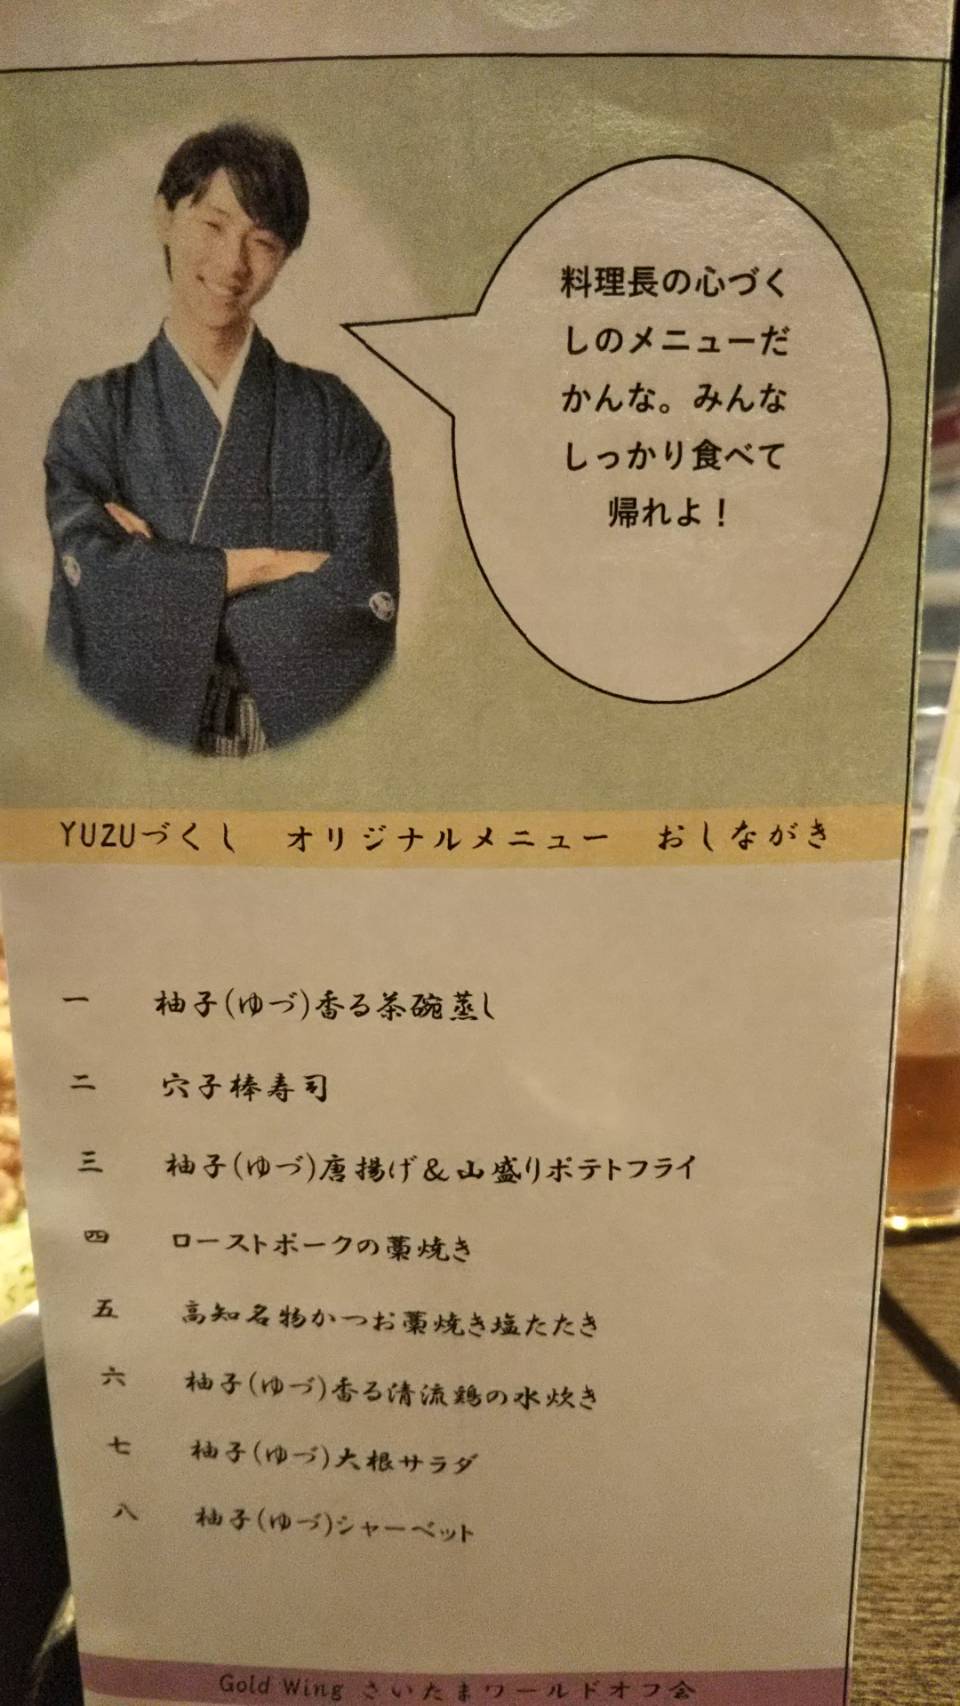 料理長の心づく
しのメニューだ
かんな。みんな
しっかり食べて
帰れよ！
YUZUづくし　オリジナルメニュー　おしながき
一　柚子(ゆづ)香る茶碗蒸し
二　穴子棒寿司
三　柚子(ゆづ)唐揚げ＆山盛りポテトフライ
四　ローストポークの藁焼き
五　高知名物かつお藁焼き塩たたき
六　柚子(ゆづ)香る清流鶏の水炊き
七　柚子(ゆづ)大根サラダ
八　柚子(ゆづ)シャーベット
Gold Wing さいたまワールドオフ会